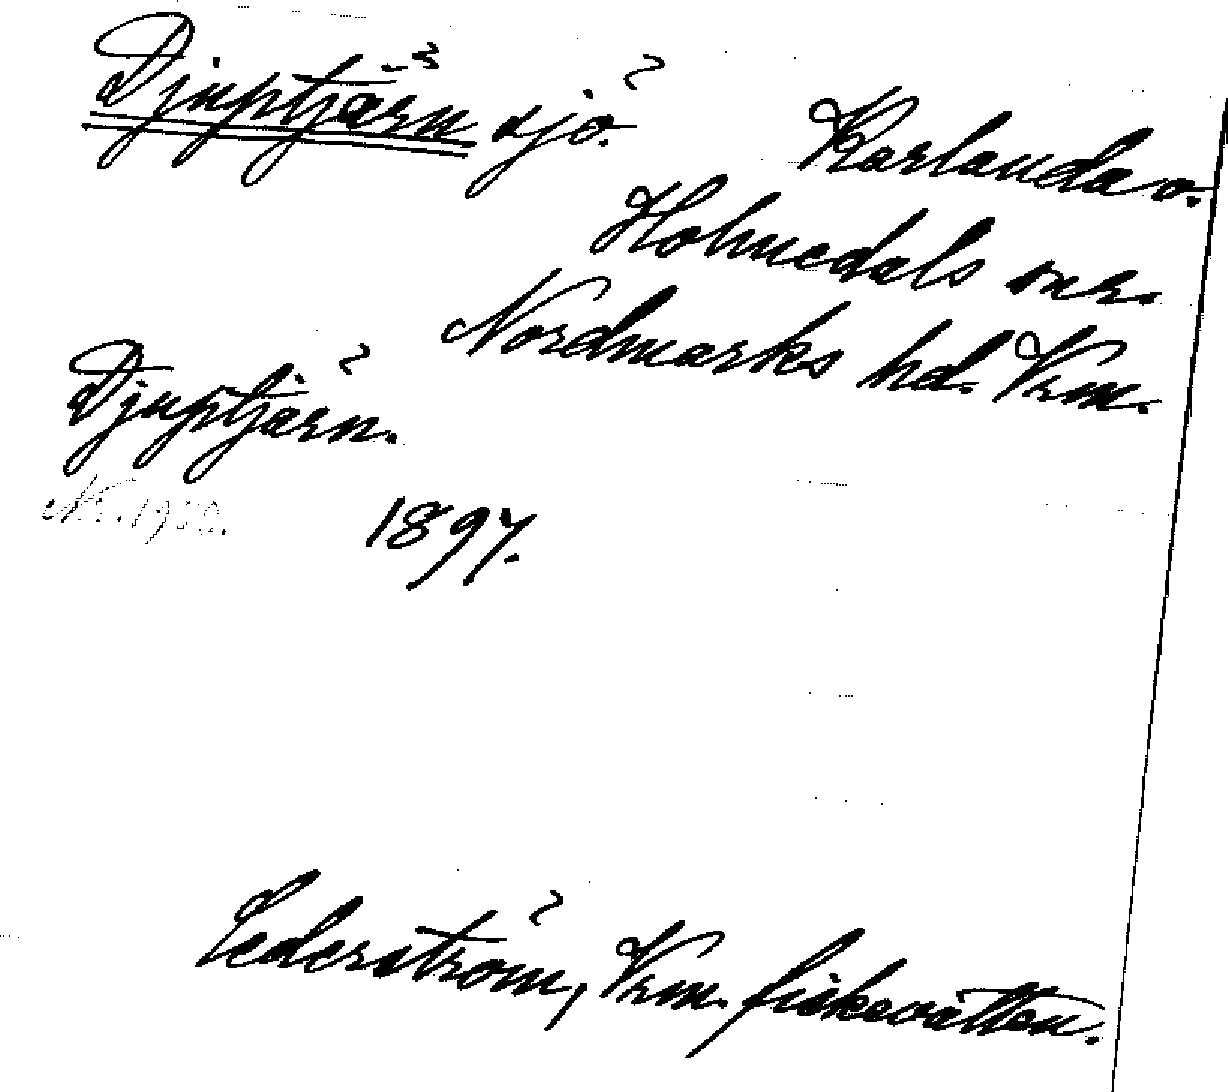 Djuptjärn sjö.
Karlanda o.
Holmedals snr.
Nordmarks hd. Vrm.
Djuptjärn.
1897.
Cederström, Vrm. fiskevatten.